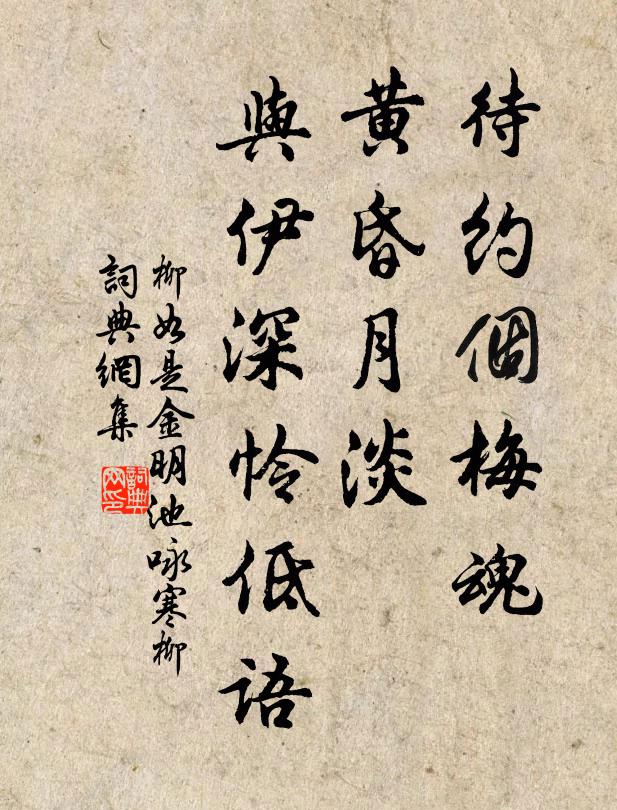 待約個梅魂
黃昏月淡
與伊深怜低語
柳如是金明池咏寒柳
詞典網集
詞典
网印